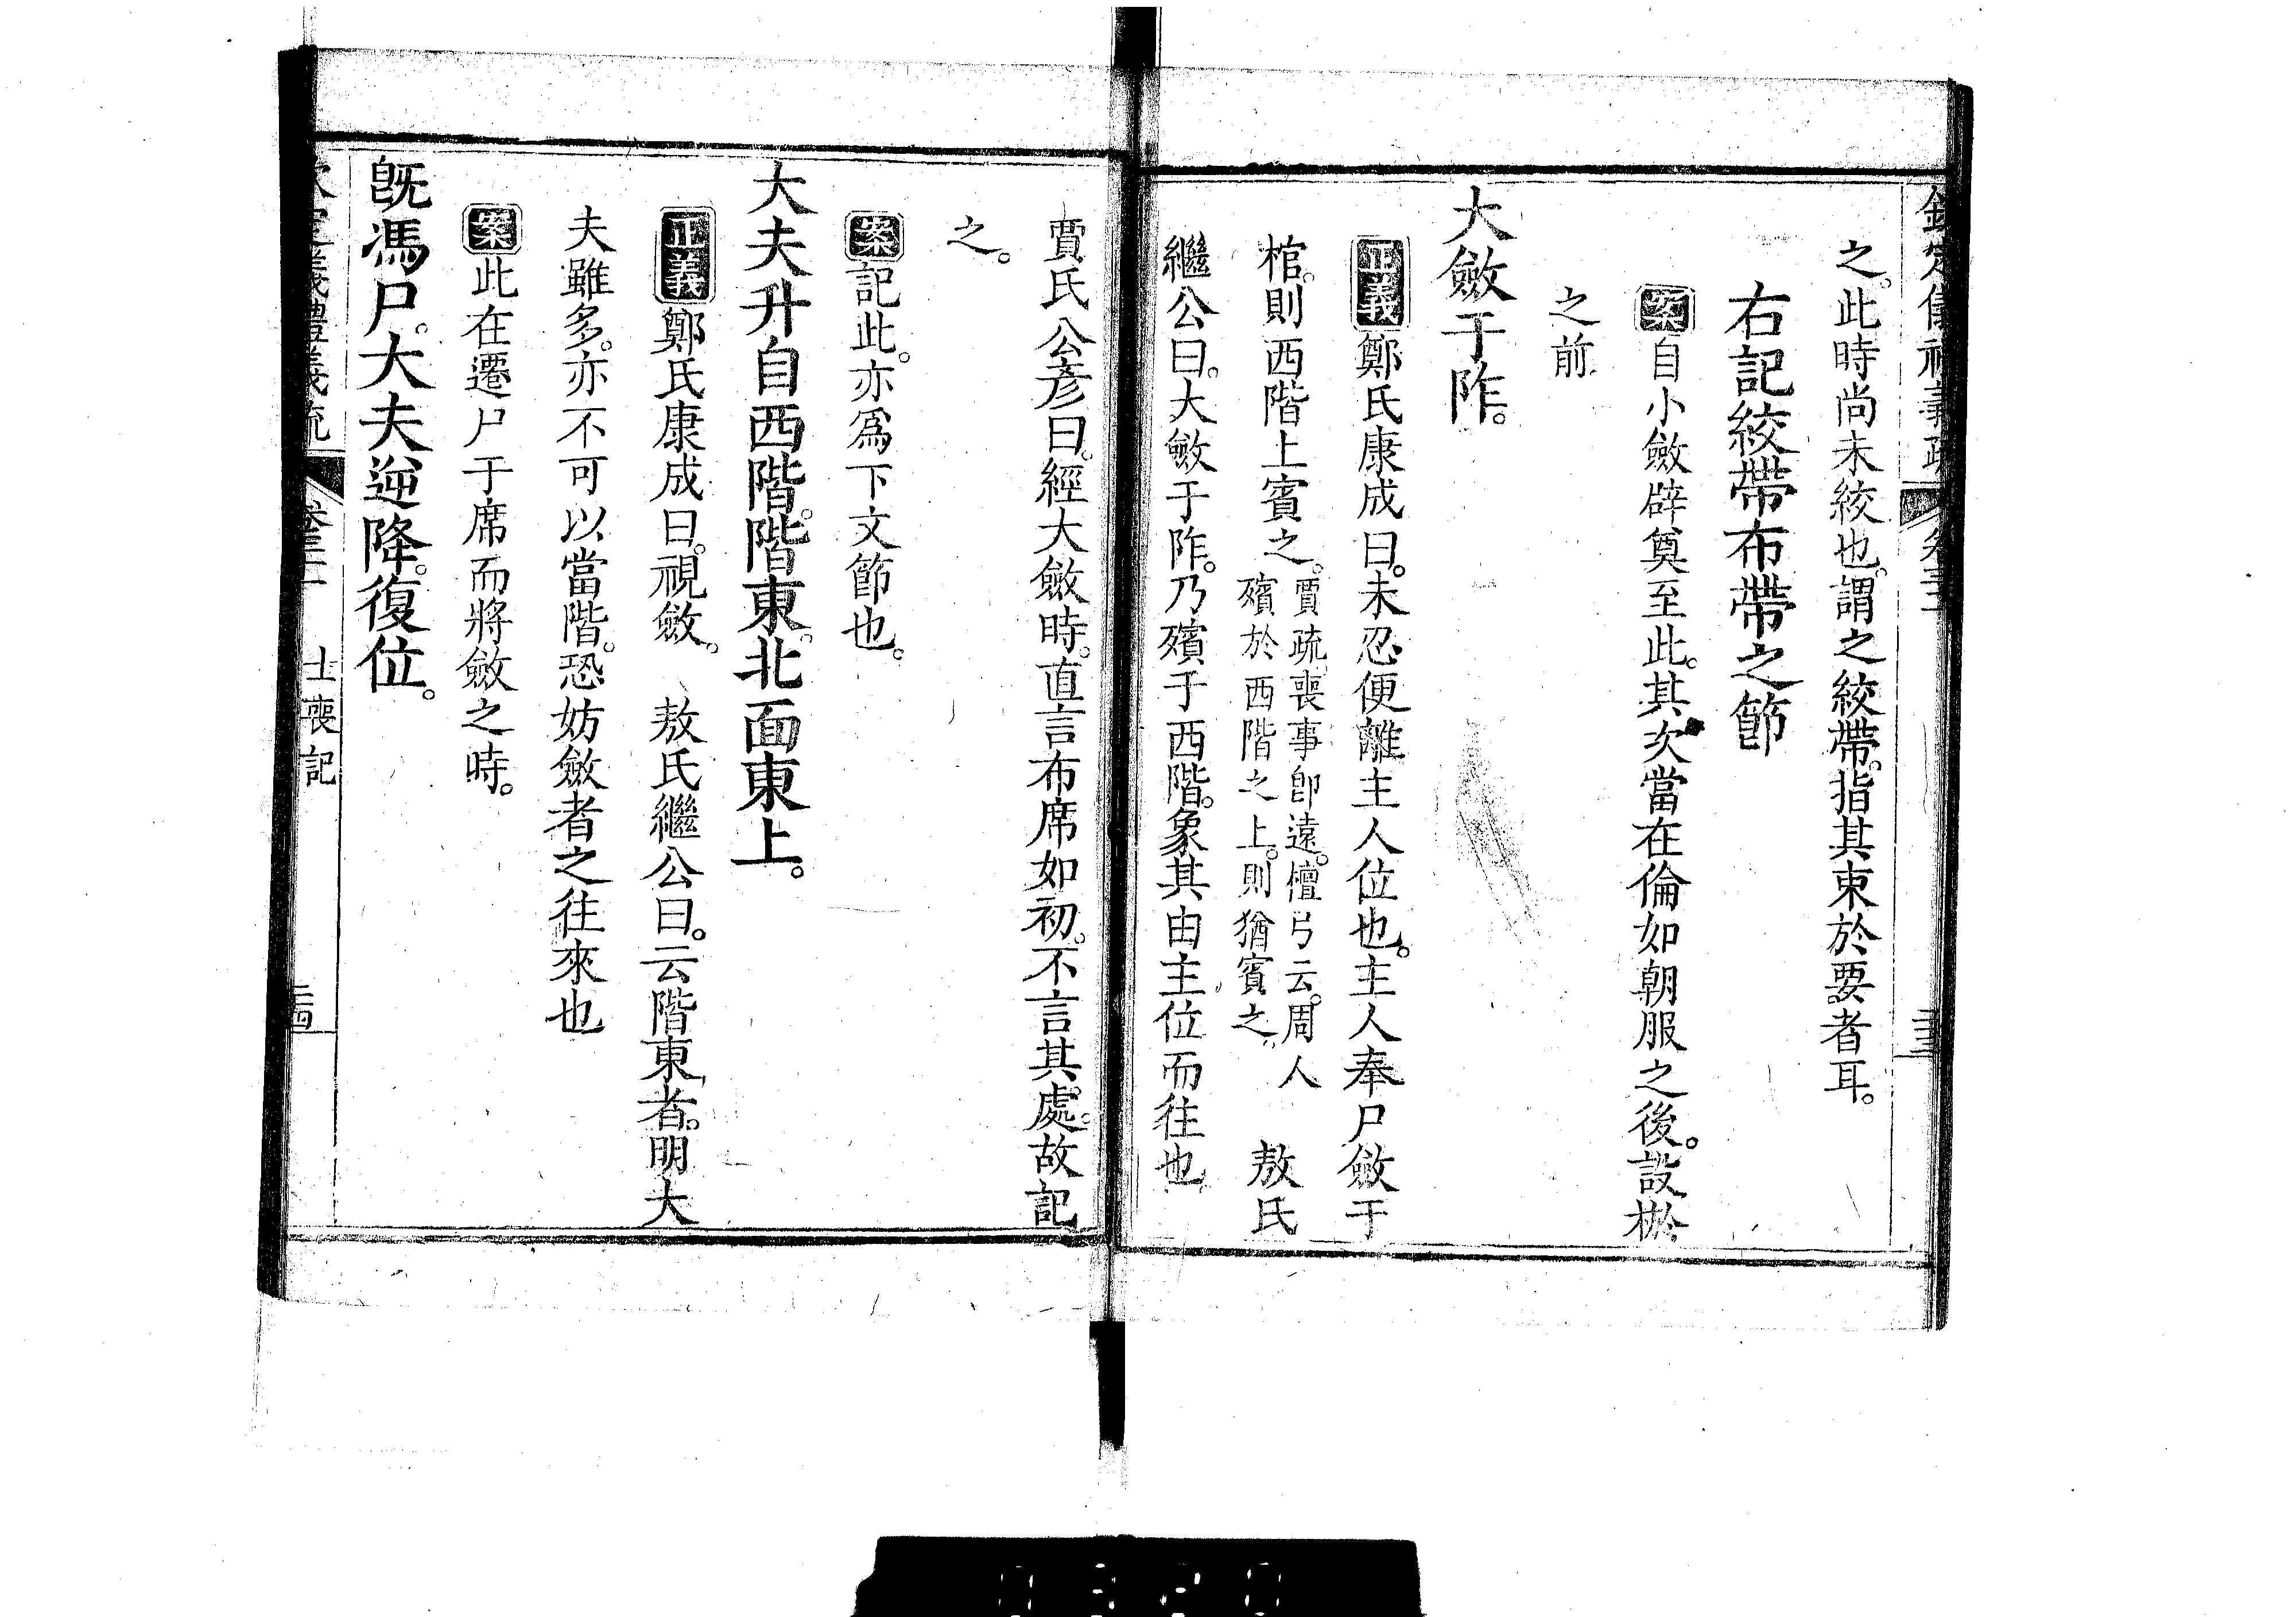 欽定儀禮義疏 卷三十一 三十三
之。此時尚未絞也。謂之絞帶。指其東於要者耳。
右記絞帶布帶之節
案自小斂辟奠至此。其次當在倫如朝服之後。設棜
之前
大斂于阼。
正義鄭氏康成曰。未忍便離主人位也。主人奉尸斂于
棺。則西階上賓之。賈疏喪事卽遠。檀弓云。周人
殯於西階之上。則猶賓之。 敖氏
繼公曰。大斂于阼。乃殯于西階。象其由主位而往也
賈氏公彥曰。經大斂時。直言布席如初。不言其處。故記
之。
案記此。亦爲下文節也。
大夫升自西階。階東。北面東上。
正義鄭氏康成曰。視斂。 敖氏繼公曰。云階東者。明大
夫雖多。亦不可以當階。恐妨斂者之往來也
案此在遷尸于席而將斂之時。
旣馮尸。大夫逆降。復位。
欽定儀禮義疏 卷三十一 士喪記 三十四
0320